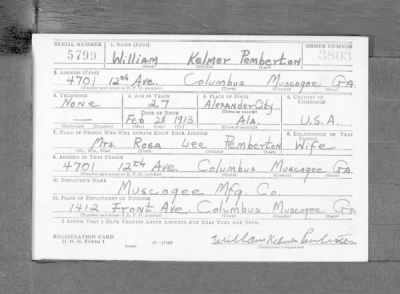 SERIAL NUMBER 1. NAME (Print) ORDER NUMBER
5799 William Kelmer Pemberton 3803
(First) (Middle) (Last)
2. ADDRESS (Print)
4701 12th Ave. Columbus Muscogee GA
3. TELEPHONE 4. AGE IN YEARS 5. PLACE OF BIRTH 6. COUNTRY OF CITIZENSHIP
None 27 Alexander City
DATE OF BIRTH
— Feb 28 1913 Ala. U.S.A.
7. NAME OF PERSON WHO WILL ALWAYS KNOW YOUR ADDRESS 8. RELATIONSHIP OF THAT PERSON
Mrs. Rosa Lee Pemberton Wife
9. ADDRESS OF THAT PERSON
4701 12th Ave. Columbus Muscogee Ga
10. EMPLOYER'S NAME
Muscogee Mfg. Co.
11. PLACE OF EMPLOYMENT OR BUSINESS
1412 Front Ave. Columbus Muscogee Ga
I AFFIRM THAT I HAVE VERIFIED ABOVE ANSWERS AND THAT THEY ARE TRUE.
REGISTRATION CARD
D. S. S. Form 1 William Kelmer Pemberton